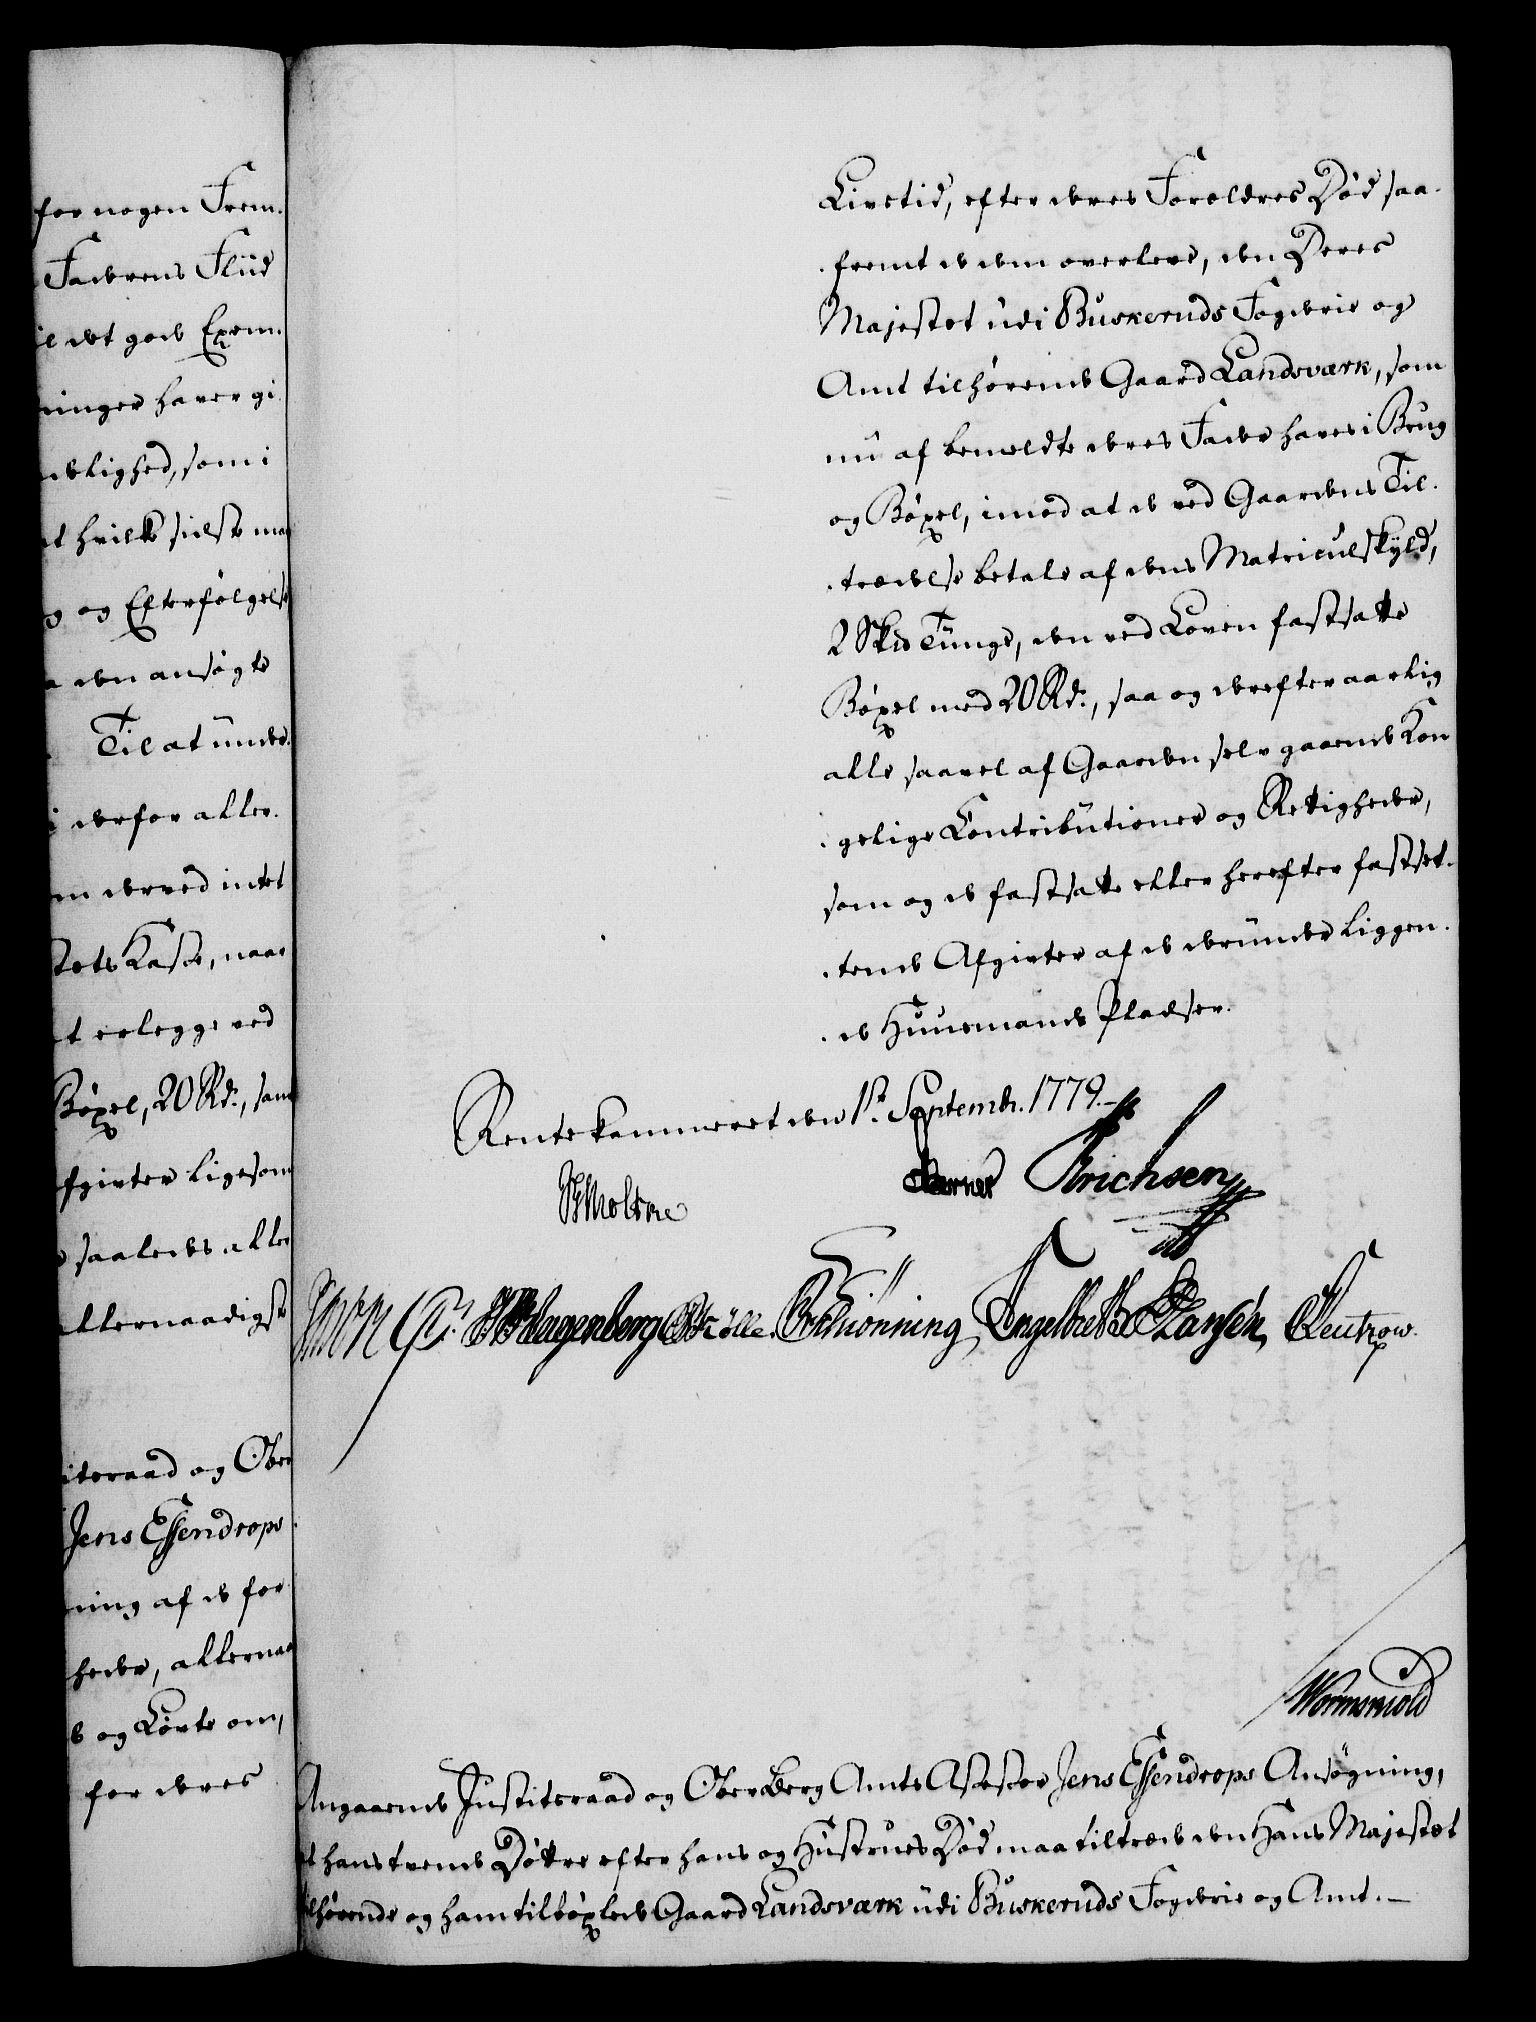 for nogen Frem-
Faderens Fliid
det gode Exem-
ninger haver gi
delighed, som i
hvilke sidste maa
og Efterfølgelse
den ansøgte
Til at unde-
derfor aller-
derved intet
Kasse, naar
erlegge ved
Bøxel, 20 Rd., samt
Afgivter ligesom
saaledes aller
allernaadigst
og Ober
Jens Essendrops
ning af de for
heder, allernaa
og Børte om,
for deres
Livstid, efter deres Foreldres Død saa-
fremt de dem overleve, den Deres
Majestet udi Buskeruds Fogderie og
Amt tilhørende Gaard Landsværk, som
nu af bemeldte deres Fader haves i Brug
og Bøxel, imod at de ved Gaardens Til-
trædelse betale af dens Matriculskyld,
2 Skd Tunge, den ved Loven fastsatte
Bøxel med 20 Rd., saa og derefter aarlig
alle saavel af Gaarden selv gaaende Kon
gelige Contributioner og Rettigheder,
som og de fastsatte eller herefter fastset-
tende Afgivter af de derunder liggen-
de Huusmands Pladser.
Rentekammeret den 1st. Septembr. 1779.
Moltke Erichsen
Hagenberg Schiønning Engelbreth Hansen
Wormskiold
Angaaende Justitsraad og Ober Berg Amts Assessor Jens Essendrops Ansøgning,
at hans tvende Døttre efter hans og Hustrues Død maa tiltræde den Hans Majestæt
tilhørende og ham tilbøxlede Gaard Landsværk udi Buskeruds Fogderie og Amt.